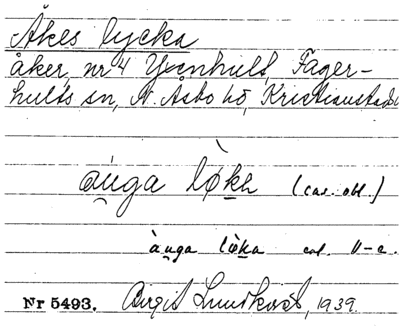 Åkes lycka
åker, nr 4 Yxenhult, Fager-
hults sn, N. Åsbo hd, Kristianstads
àu̯ga lø̀kh (cas. obl.)
àu̯ga løka
Nr 5493. Birgit Lundkvist, 1939.